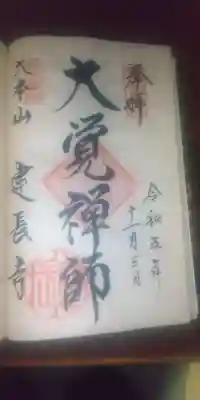 奉拝
令和五年
十一月三日
大覚禅師
大本山
建長寺